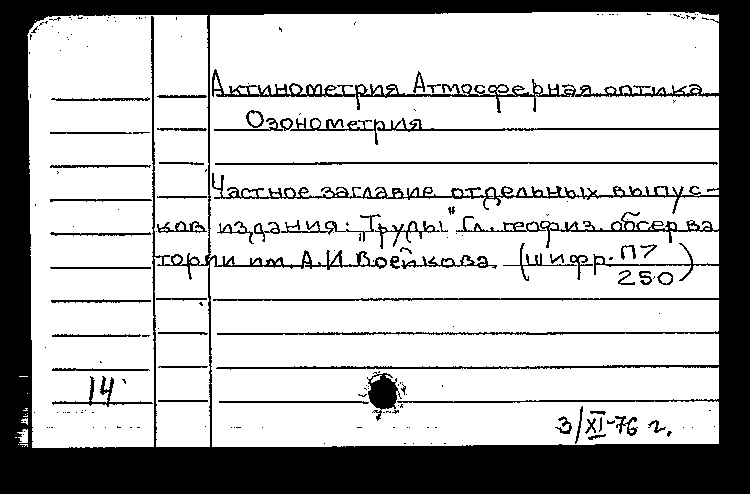 Актинометрия Атмосферная оптика
Озонометрия.
Частное заглавие отдельных выпус-
ков издания: „Труды" Гл. геофиз. обсерва
тории им. А.И. Воейкова. (шифр. П7/250)
14
3/XI-76 г.